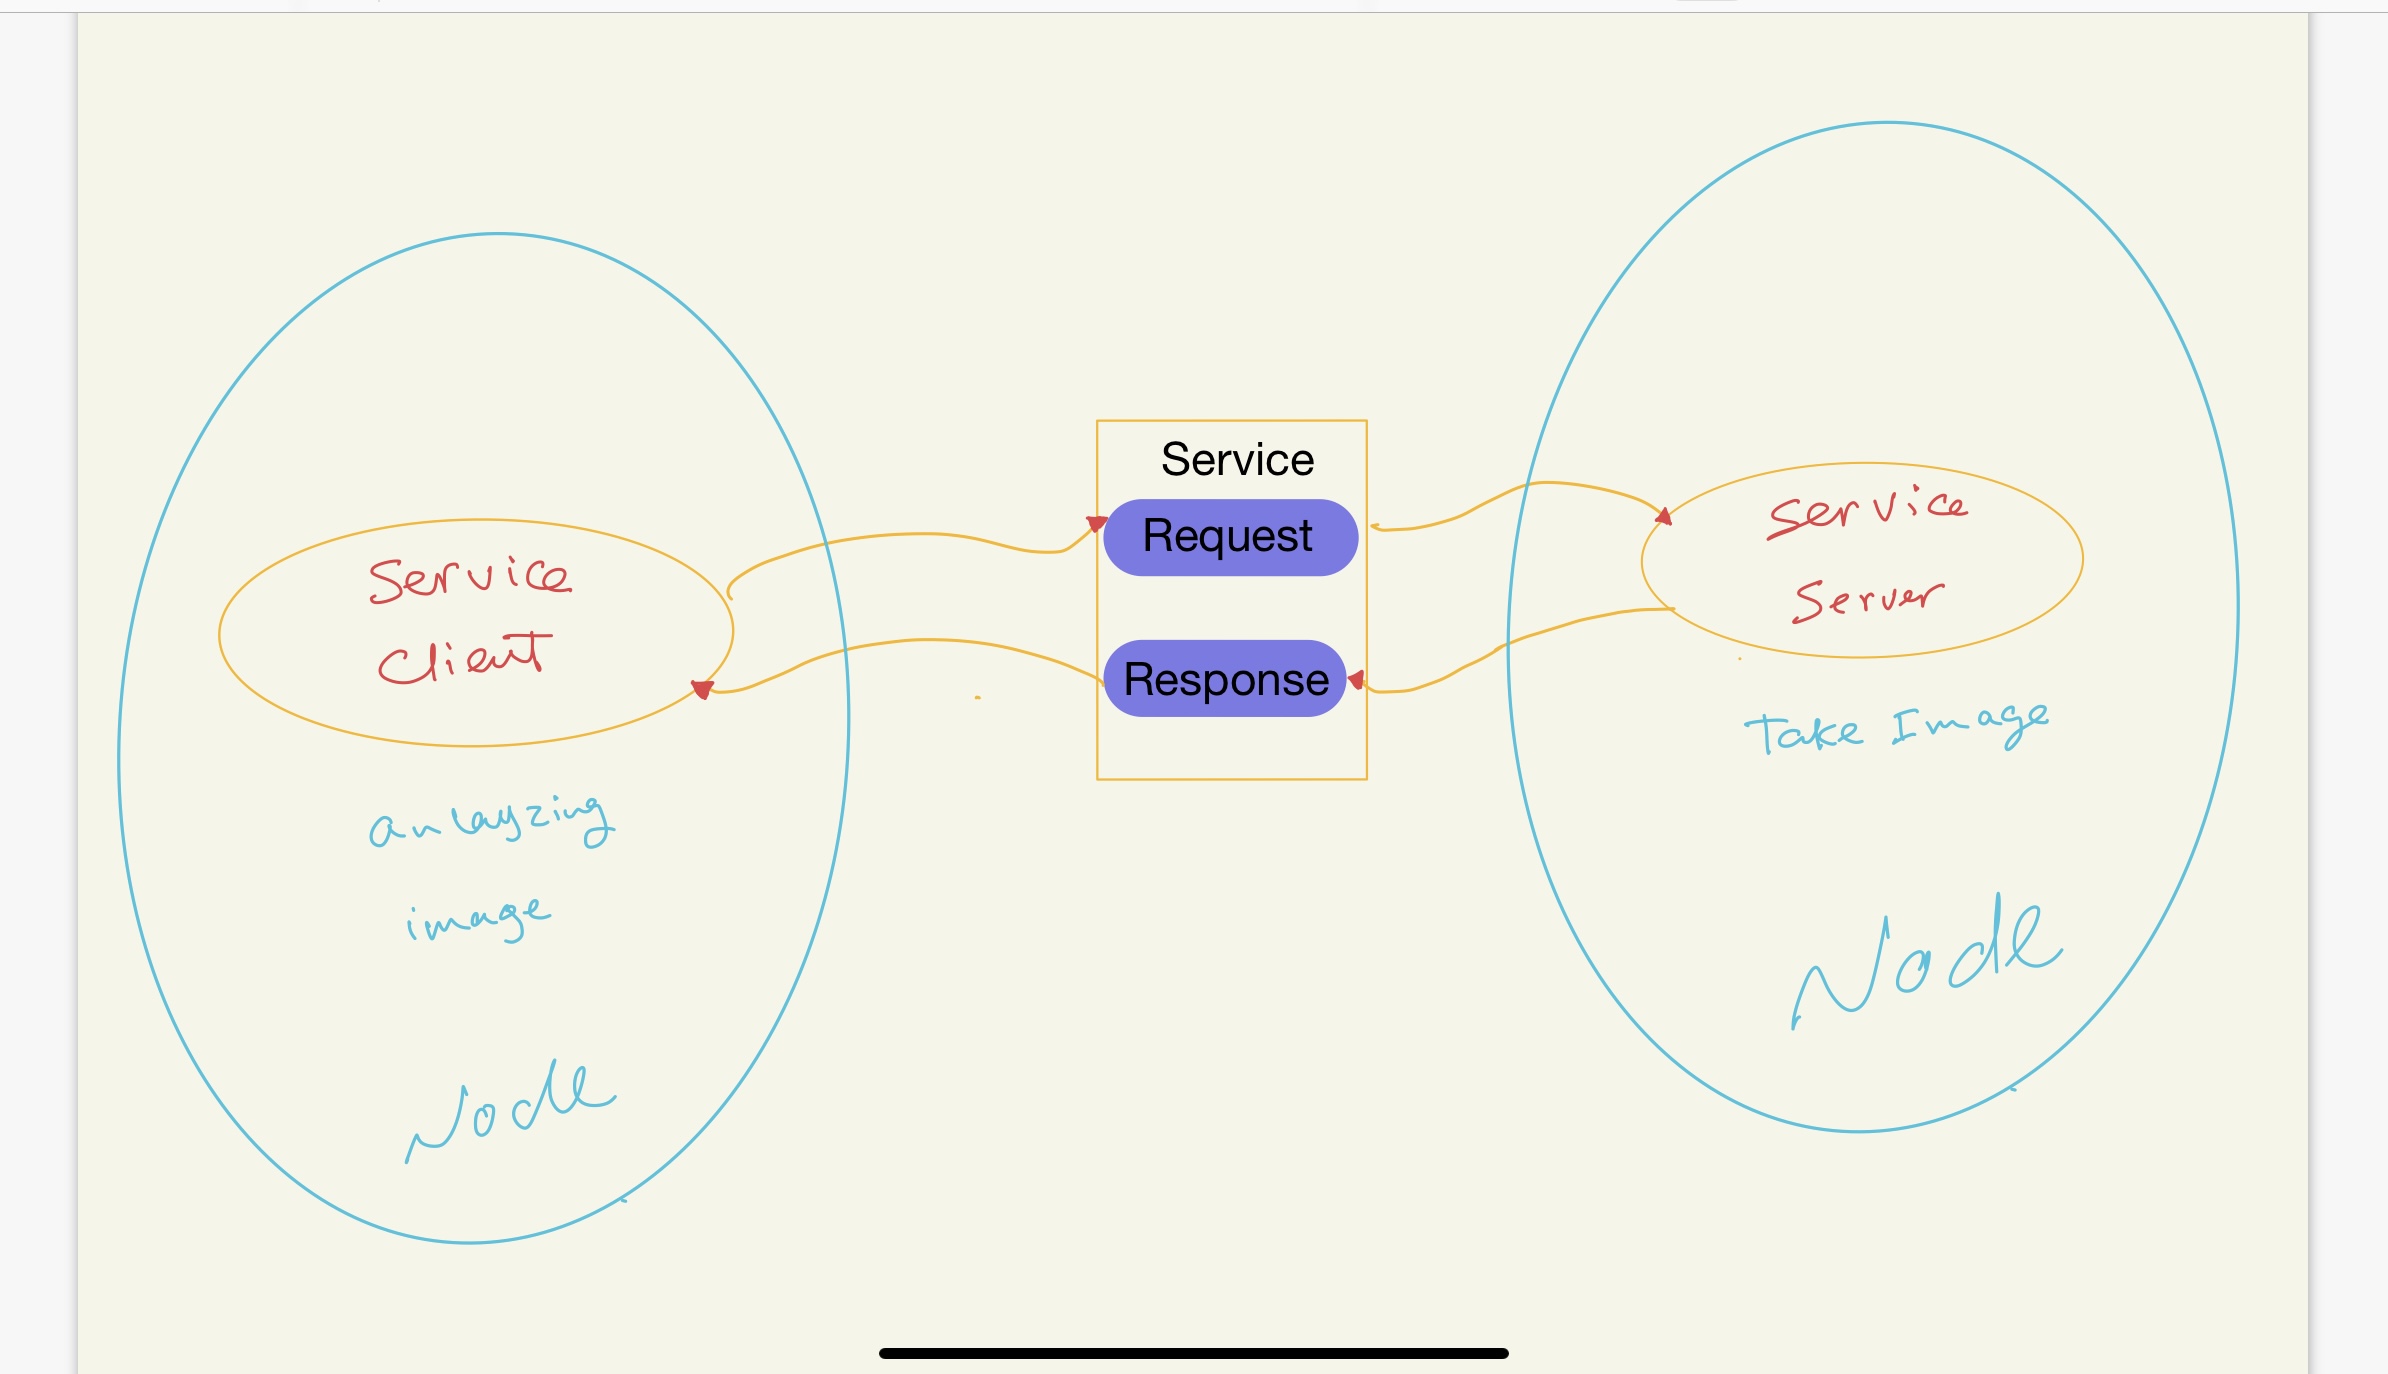 Service
Client
anlayzing
image
Node
Service
Request
Response
Service
Server
Take Image
Node